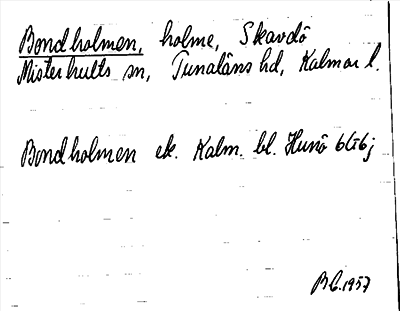 Bondholmen, holme, Skavdö
Misterhults sn, Tunaläns hd, Kalmar l.
Bondholmen ek. Kalm. bl. Hunö 6G6j
1957